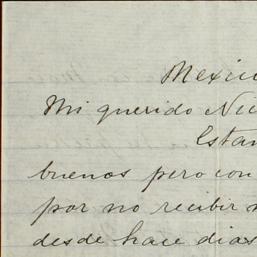 Mexic
Mi querido Nic
Estam
buenos pero con
por no recibir n
desde hace dias